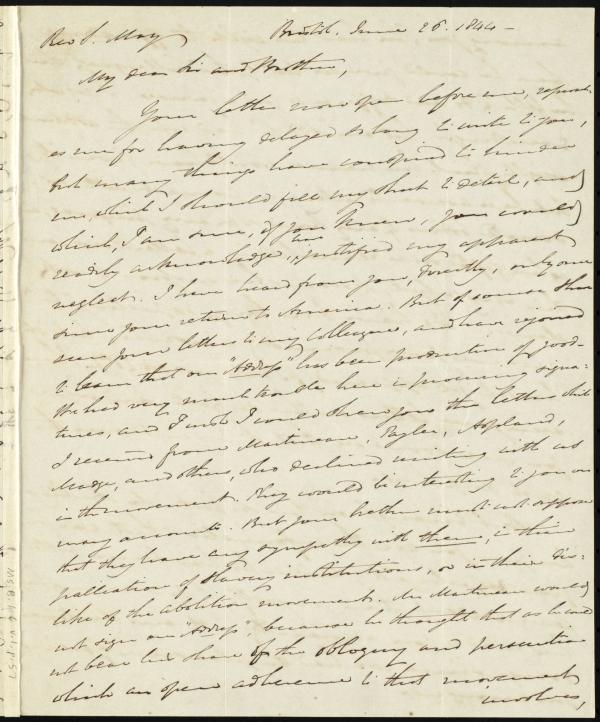 Rev S. May
Bristol. June 26. 1844 –
My dear Sir and Brother,
Your letter now open before me, reproach-
es me for having delayed so long to write to you,
but many things have conspired to hinder
me, which I should fill my sheet to detail, and
which, I am sure, if you knew, you would
readily acknowledge, justified my apparent
neglect. I have heard from you, directly, only once
since your return to America. But of course I have
seen your letters to my Colleague, and have rejoiced
to learn that our "Address" has been productive of good –
We had very much trouble here in procuring signa-
tures, and I wish I could shew you the letters
I received from Martineau, Tayler, Aspland,
Madge, and others, who declined uniting with us
in the movement. They would be interesting to you on
many accounts. But your brethren must not suppose
that they have any sympathy with them, in their
palliation of Slavery institutions, or in their dis-
like of the abolition movement. Mr Martineau would
not sign our "Address", because he thought that as he could
not bear his share of the obloquy and persecution
which an open adherence to that movement
involves,